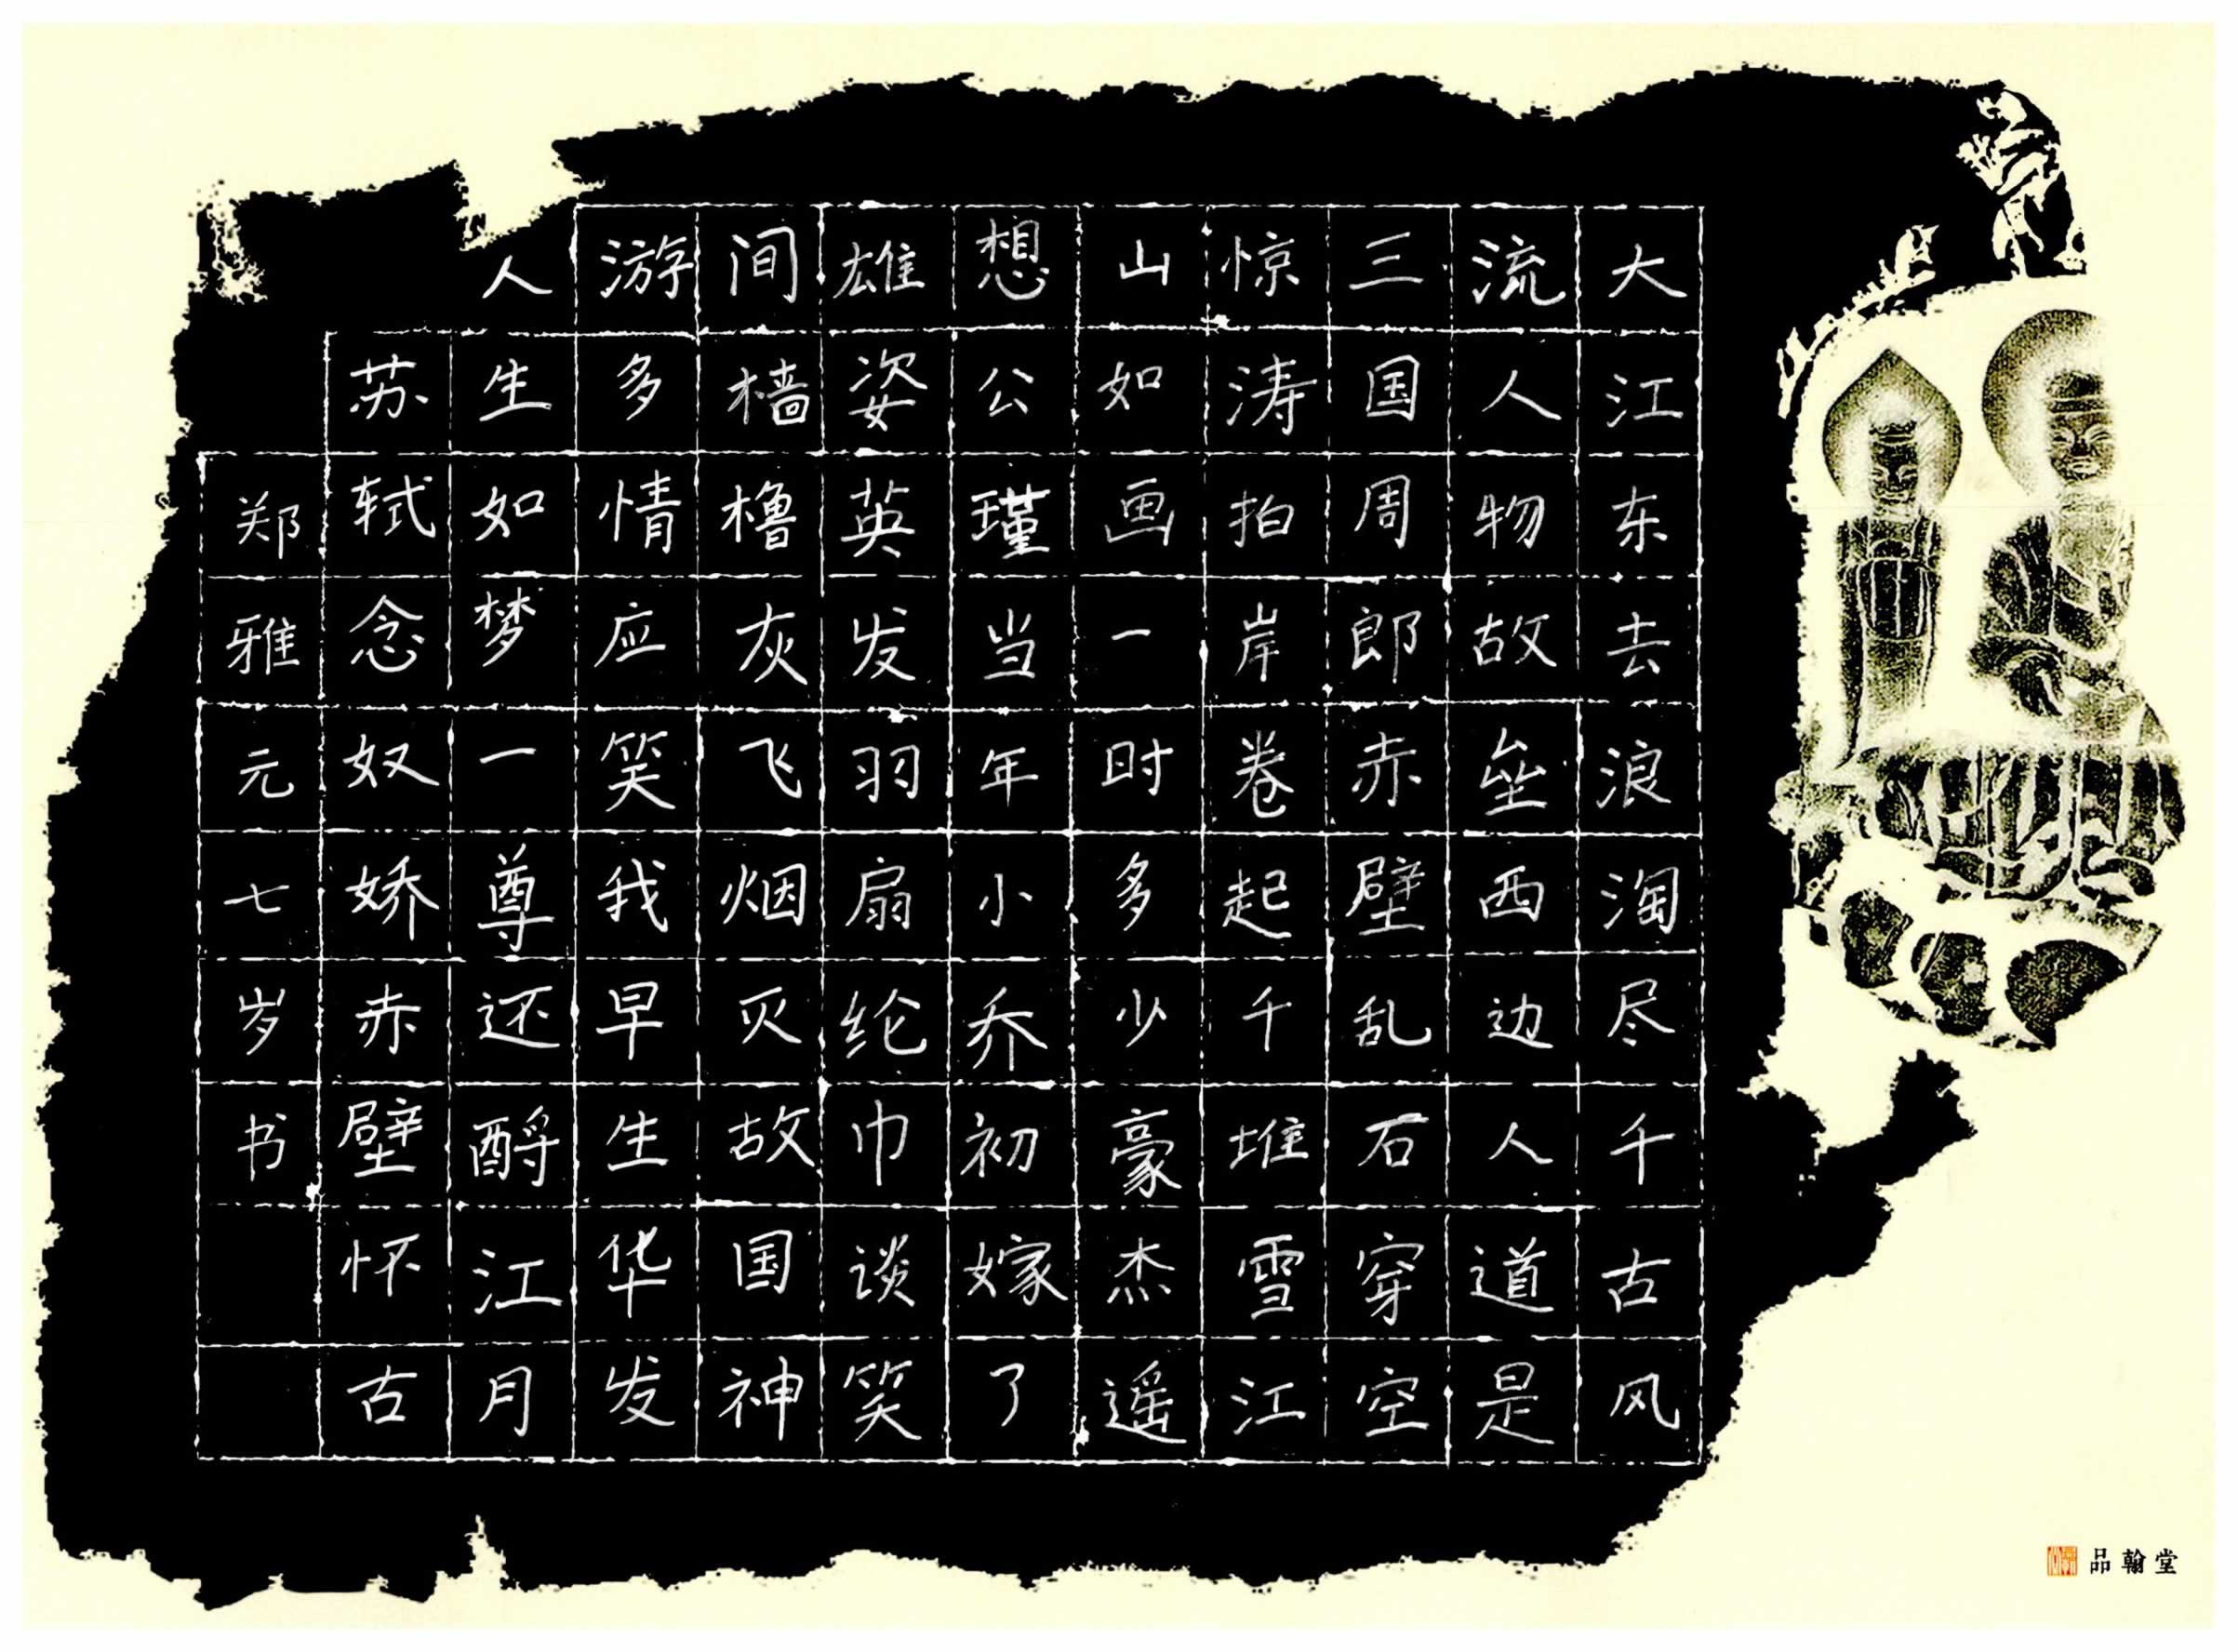 大江东去浪淘尽千古风
流人物故垒西边人道是
三国周郎赤壁乱石穿空
惊涛拍岸卷起千堆雪江
山如画一时多少豪杰遥
想公瑾当年小乔初嫁了
雄姿英发羽扇纶巾谈笑
间樯橹灰飞烟灭故国神
游多情应笑我早生华发
人生如梦一尊还酹江月
苏轼念奴娇赤壁怀古
郑雅元七岁书
品翰堂